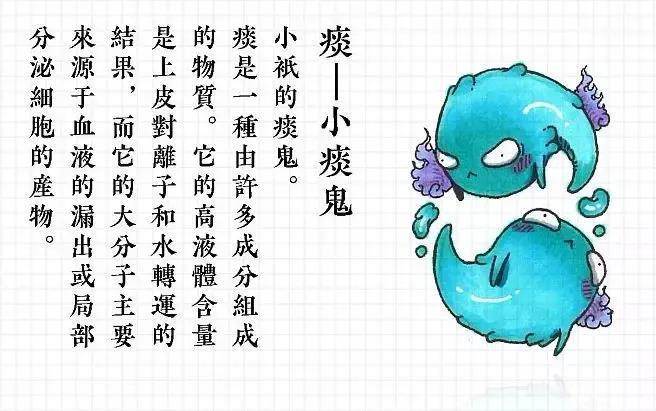 痰—小痰鬼
小衹的痰鬼。
痰是一種由許多成分組成
的物質。它的高液體含量
是上皮對離子和水轉運的
結果，而它的大分子主要
來源于血液的漏出或局部
分泌細胞的産物。